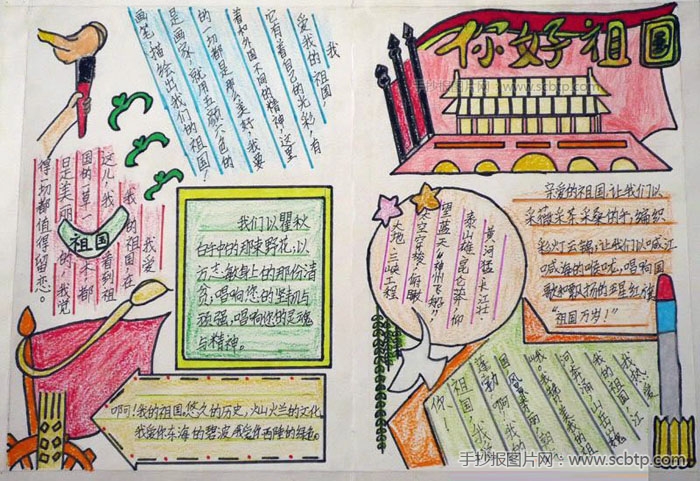 我
爱我的祖国!
它有着自己的光彩,有
着和外国不同的精神,这里
的一切都是那么美好,我要
是画家,就用五颜六色的
画笔描绘出我们的祖国!
我爱
我的祖国,在
这儿,我看到祖
国的一草一木都
日是美丽的,我觉
得一切都值得留恋。
祖国
我们以瞿秋
白手中的那束野花,以
方志敏身上的那份清
贫,唱响您的坚韧与
顽强,唱响你的灵魂
与精神。
啊!我的祖国,悠久的历史,火山火兰的文化。
我爱你东海的碧波,你西陲的绿色。
你好祖国
黄河猛,长江壮,
泰山雄,昆仑莽,仰
望蓝天“神州飞船”
太空穿梭,俯瞰
大地,三峡工程
亲爱的祖国,让我们以
采薇采采桑的手,编织
彩灯云锦;让我们以喊江
喊海的喉咙,唱响国
歌,飘扬的五星红旗
“祖国万岁!”
我热爱
我的祖国,江
河奔涌,山
我赞美我的
国,风景秀丽,朝
蓬勃啊,我的
祖国,我
你!
手抄报图片网:www.scbtp.com
手抄报图片网:www.scbtp.com